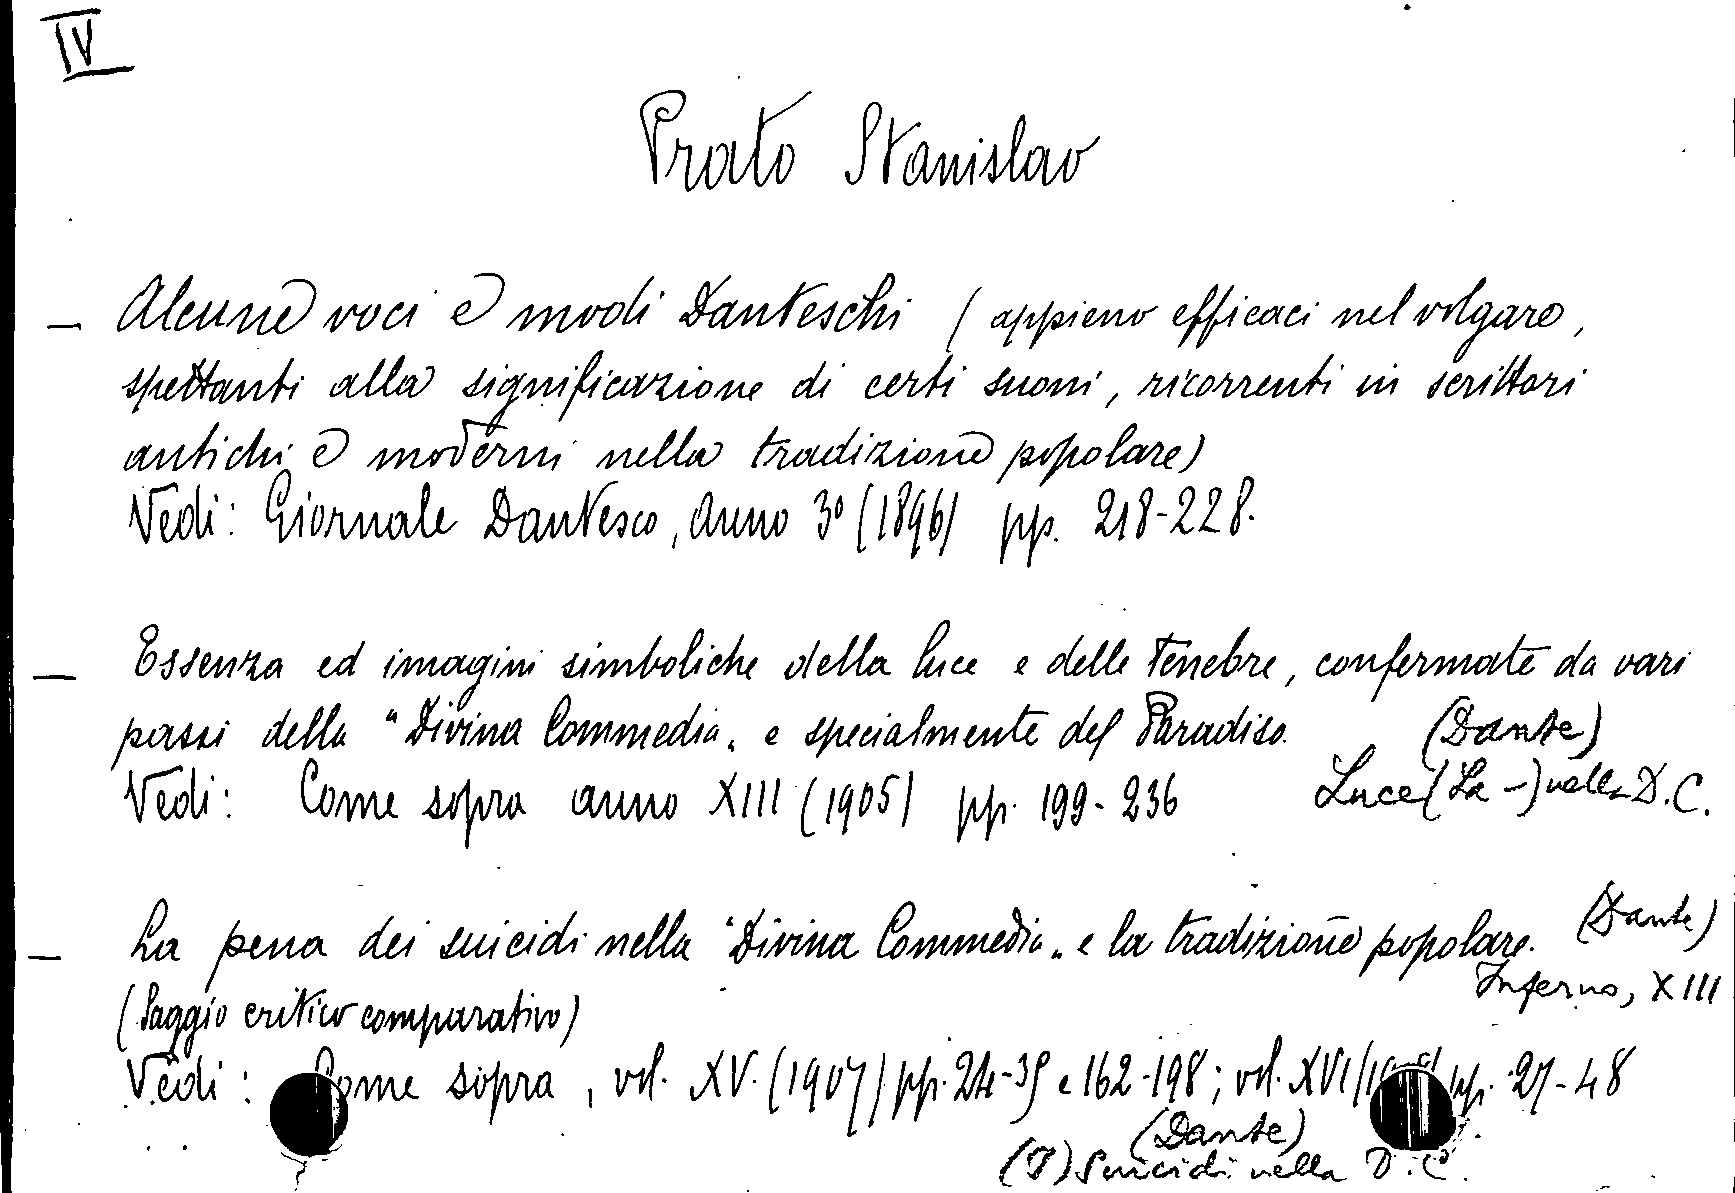 IV
Prato Stanislao
— Alcune voci e modi Danteschi (appieno efficaci nel volgare,
spettanti alla significazione di certi suoni, ricorrenti in scrittori
antichi e moderni nella tradizione popolare)
Vedi: Giornale Dantesco, Anno 3º (1896) pp. 218-228.
— Essenza ed imagini simboliche della luce e delle tenebre, confermate da vari
passi della "Divina Commedia" e specialmente del Paradiso. (Dante)
Vedi: Come sopra anno XIII (1905) pp. 199-236 Luce (La -) nella D.C.
— La pena dei suicidi nella "Divina Commedia" e la tradizione popolare. (Dante)
Inferno, XIII
(Saggio critico comparativo)
Vedi: Come sopra, vol. XV. (1907) pp. 24-35 e 162-198; vol. XVI pp. 27-48
(Dante)
(I) Suicidi nella D.C.